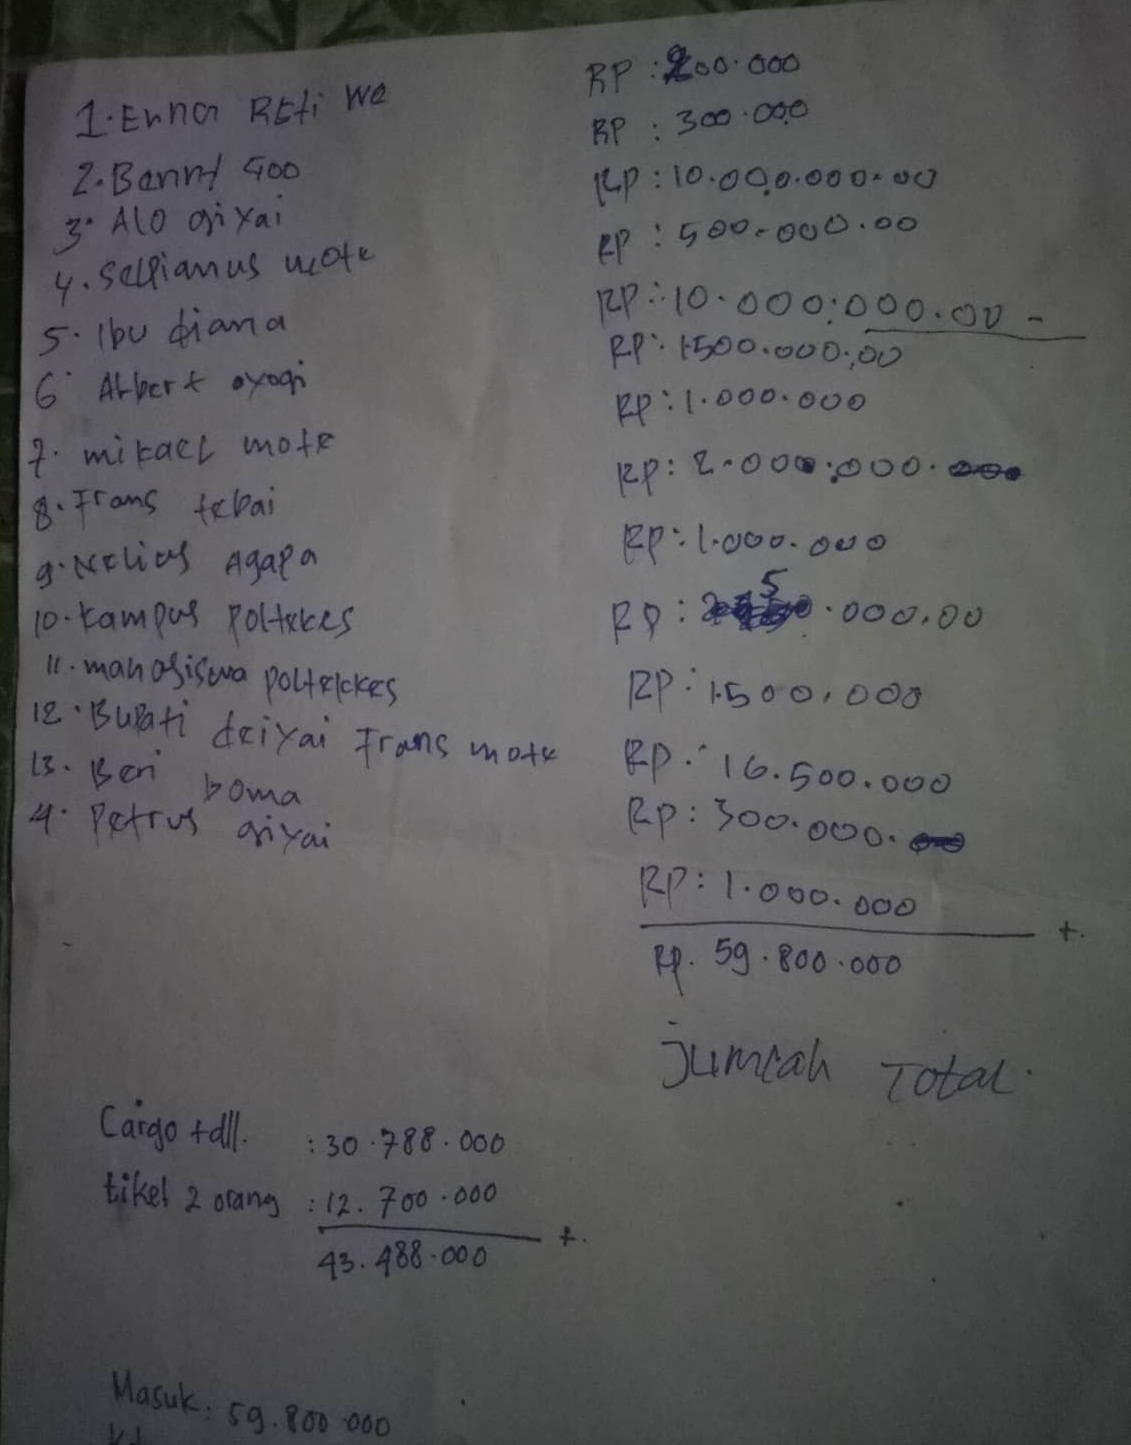 1. Enna REti We RP : 200.000
2. Benny Goo RP : 300.000
3. Alo giyai RP : 10.000.000.00
4. Selpianus mote RP : 500.000.00
5. Ibu diana RP : 10.000.000.00 -
6 Albert oyogi RP : 1.500.000,00
7. mikael mote RP : 1.000.000
8. Frans tebai RP : 2.000.000.
9. Nelius Agapa RP : 1.000.000
10. Kampus Poltekes RP : 5 .000,00
11. mahasiswa poltekkes RP : 1.500.000
12. Bupati deiyai Frans mote RP : 16.500.000
13. Beni Doma RP : 300.000.
4. Petrus giyai RP : 1.000.000
+.
Rp. 59.800.000
jumlah Total.
Cargo + dll. : 30.788.000
tiket 2 orang : 12.700.000
+.
43.488.000
Masuk : 59.800.000